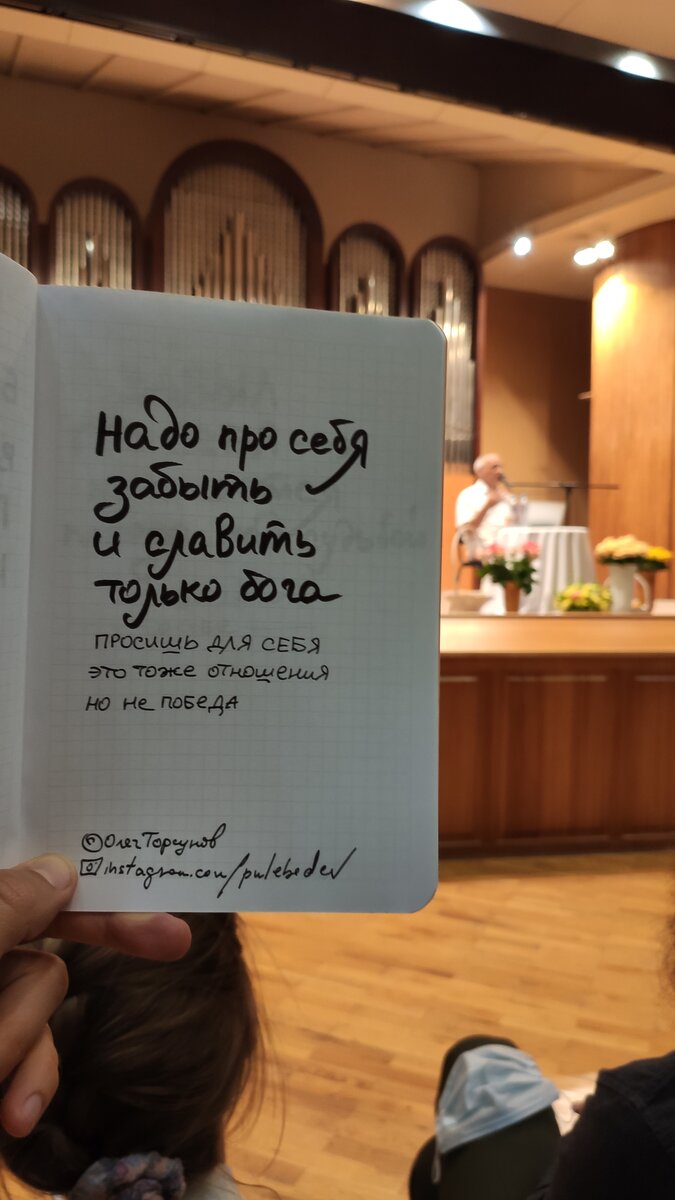 Надо про себя
забыть
и славить
только бога
просишь для себя
это тоже отношения
но не победа
© Олег Торсунов
instagram.com/pulebedev